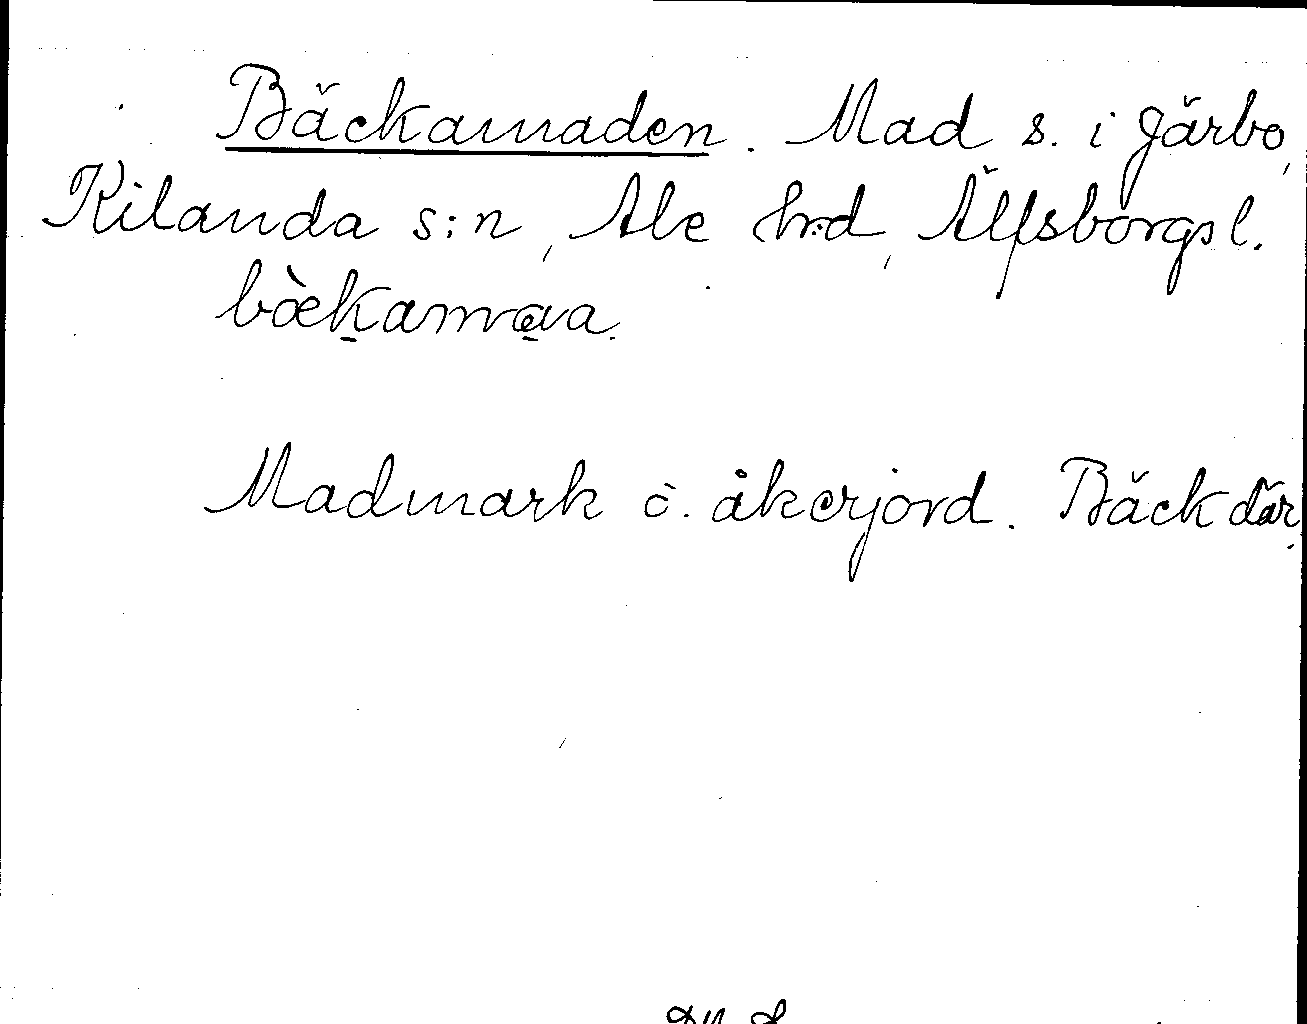 Bäckamaden. Mad s. i Järbo,
Kilanda s:n, Ale hrd, Älfsborgs l.
bæ̀kamɑva.
Madmark o. åkerjord. Bäck där.